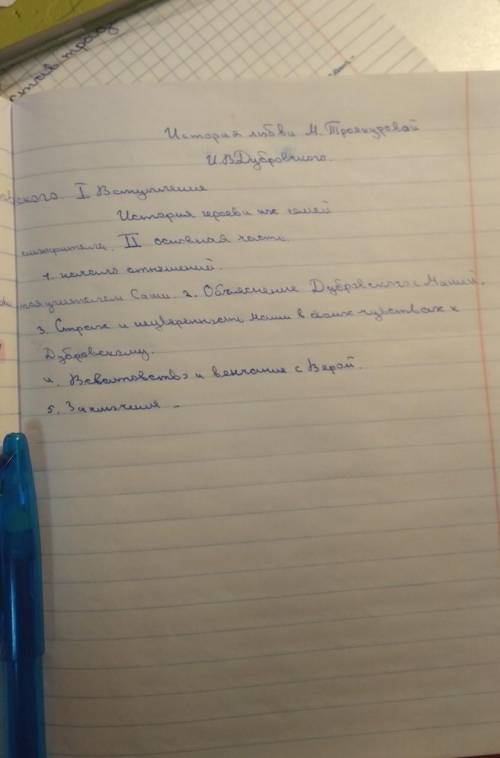 став. трад
История любви М. Троекуровой
И. В. Дубровского.
вского I Вступление
История героев и их семей
II основная часть
1. начало отношений.
учителем Саши. 2. Объяснение Дубровского с Машей.
3. Страх и неуверенность маши в своих чувствах к
Дубровскому.
4. Всватовство и венчание с Верой.
5. Заключение -